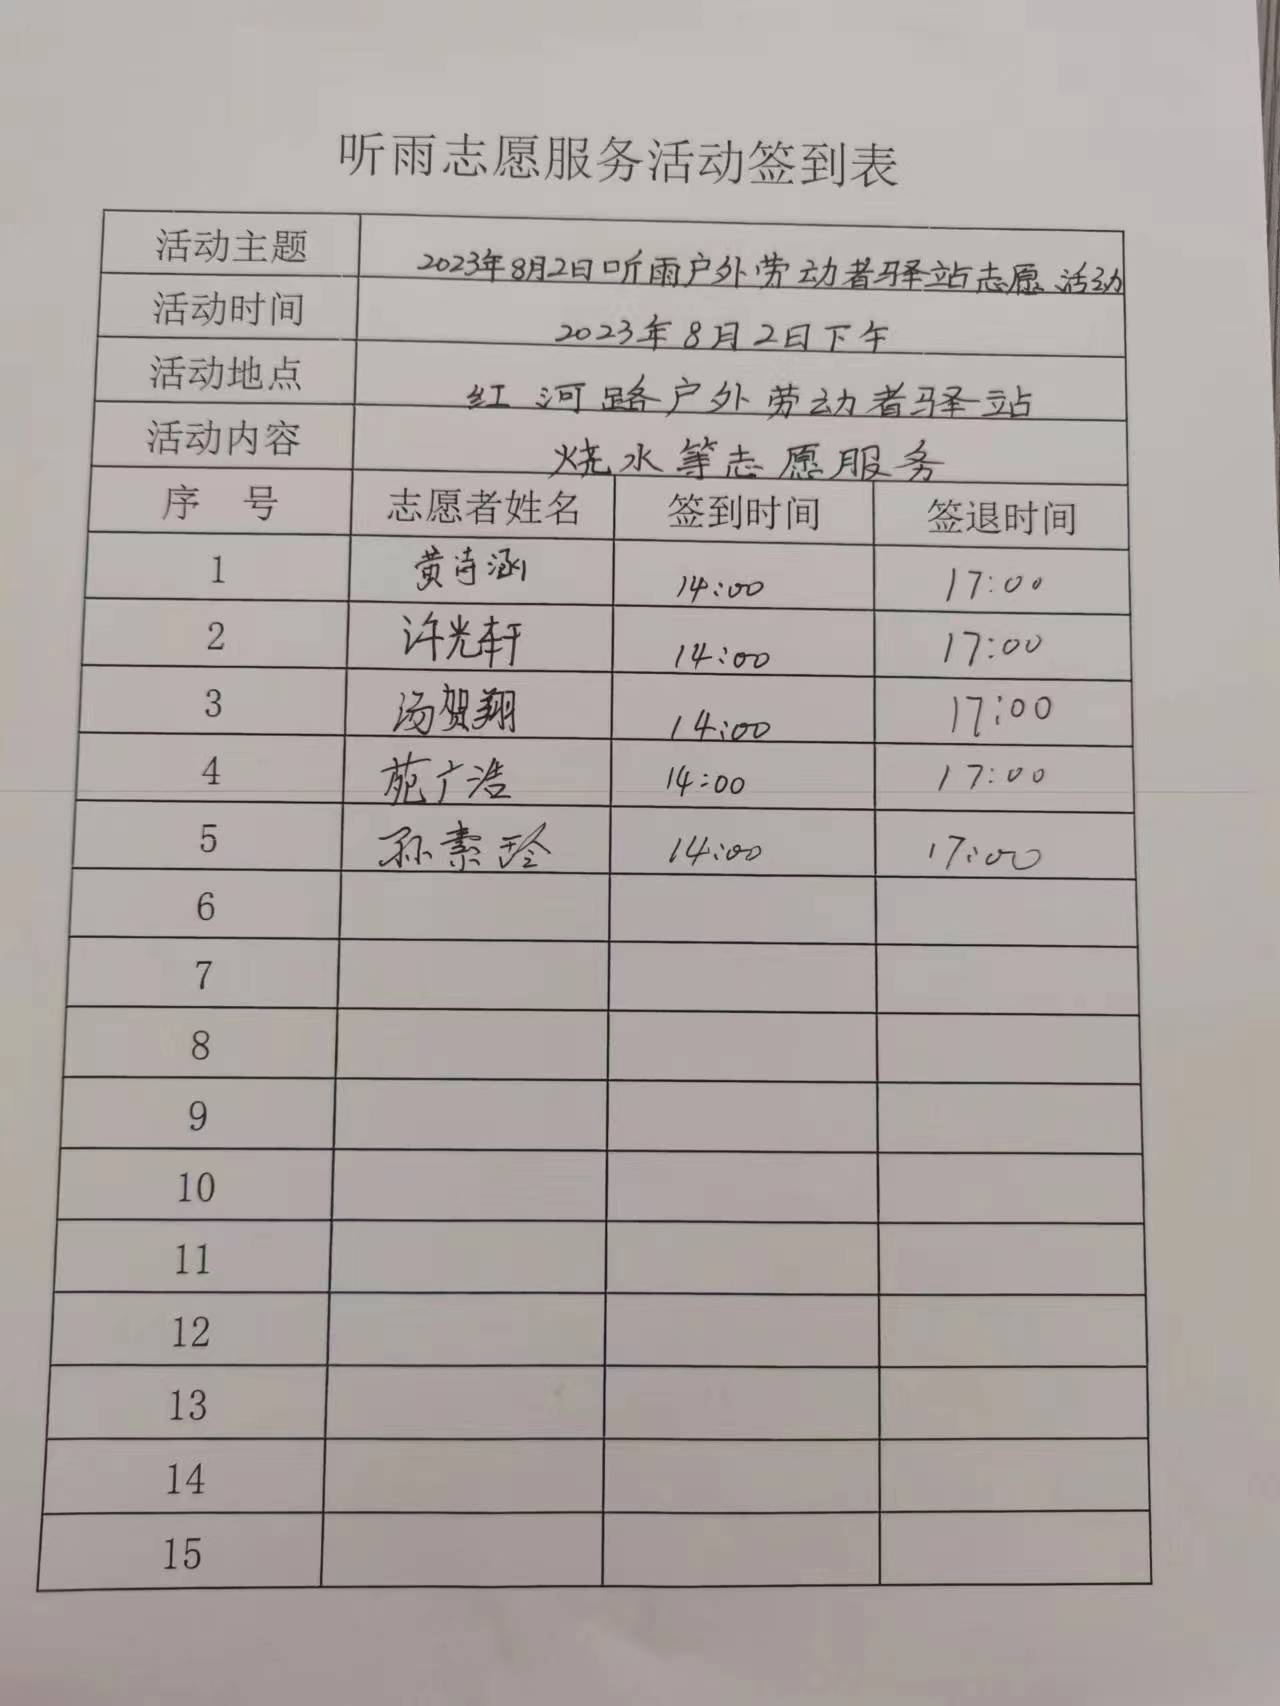 听雨志愿服务活动签到表
活动主题 2023年8月2日听雨户外劳动者驿站志愿活动
活动时间 2023年8月2日下午
活动地点 红河路户外劳动者驿站
活动内容 烧水等志愿服务
序 号 志愿者姓名 签到时间 签退时间
1 黄诗涵 14:00 17:00
2 许光轩 14:00 17:00
3 汤贺翔 14:00 17:00
4 苑广浩 14:00 17:00
5 孙素玲 14:00 17:00
6
7
8
9
10
11
12
13
14
15